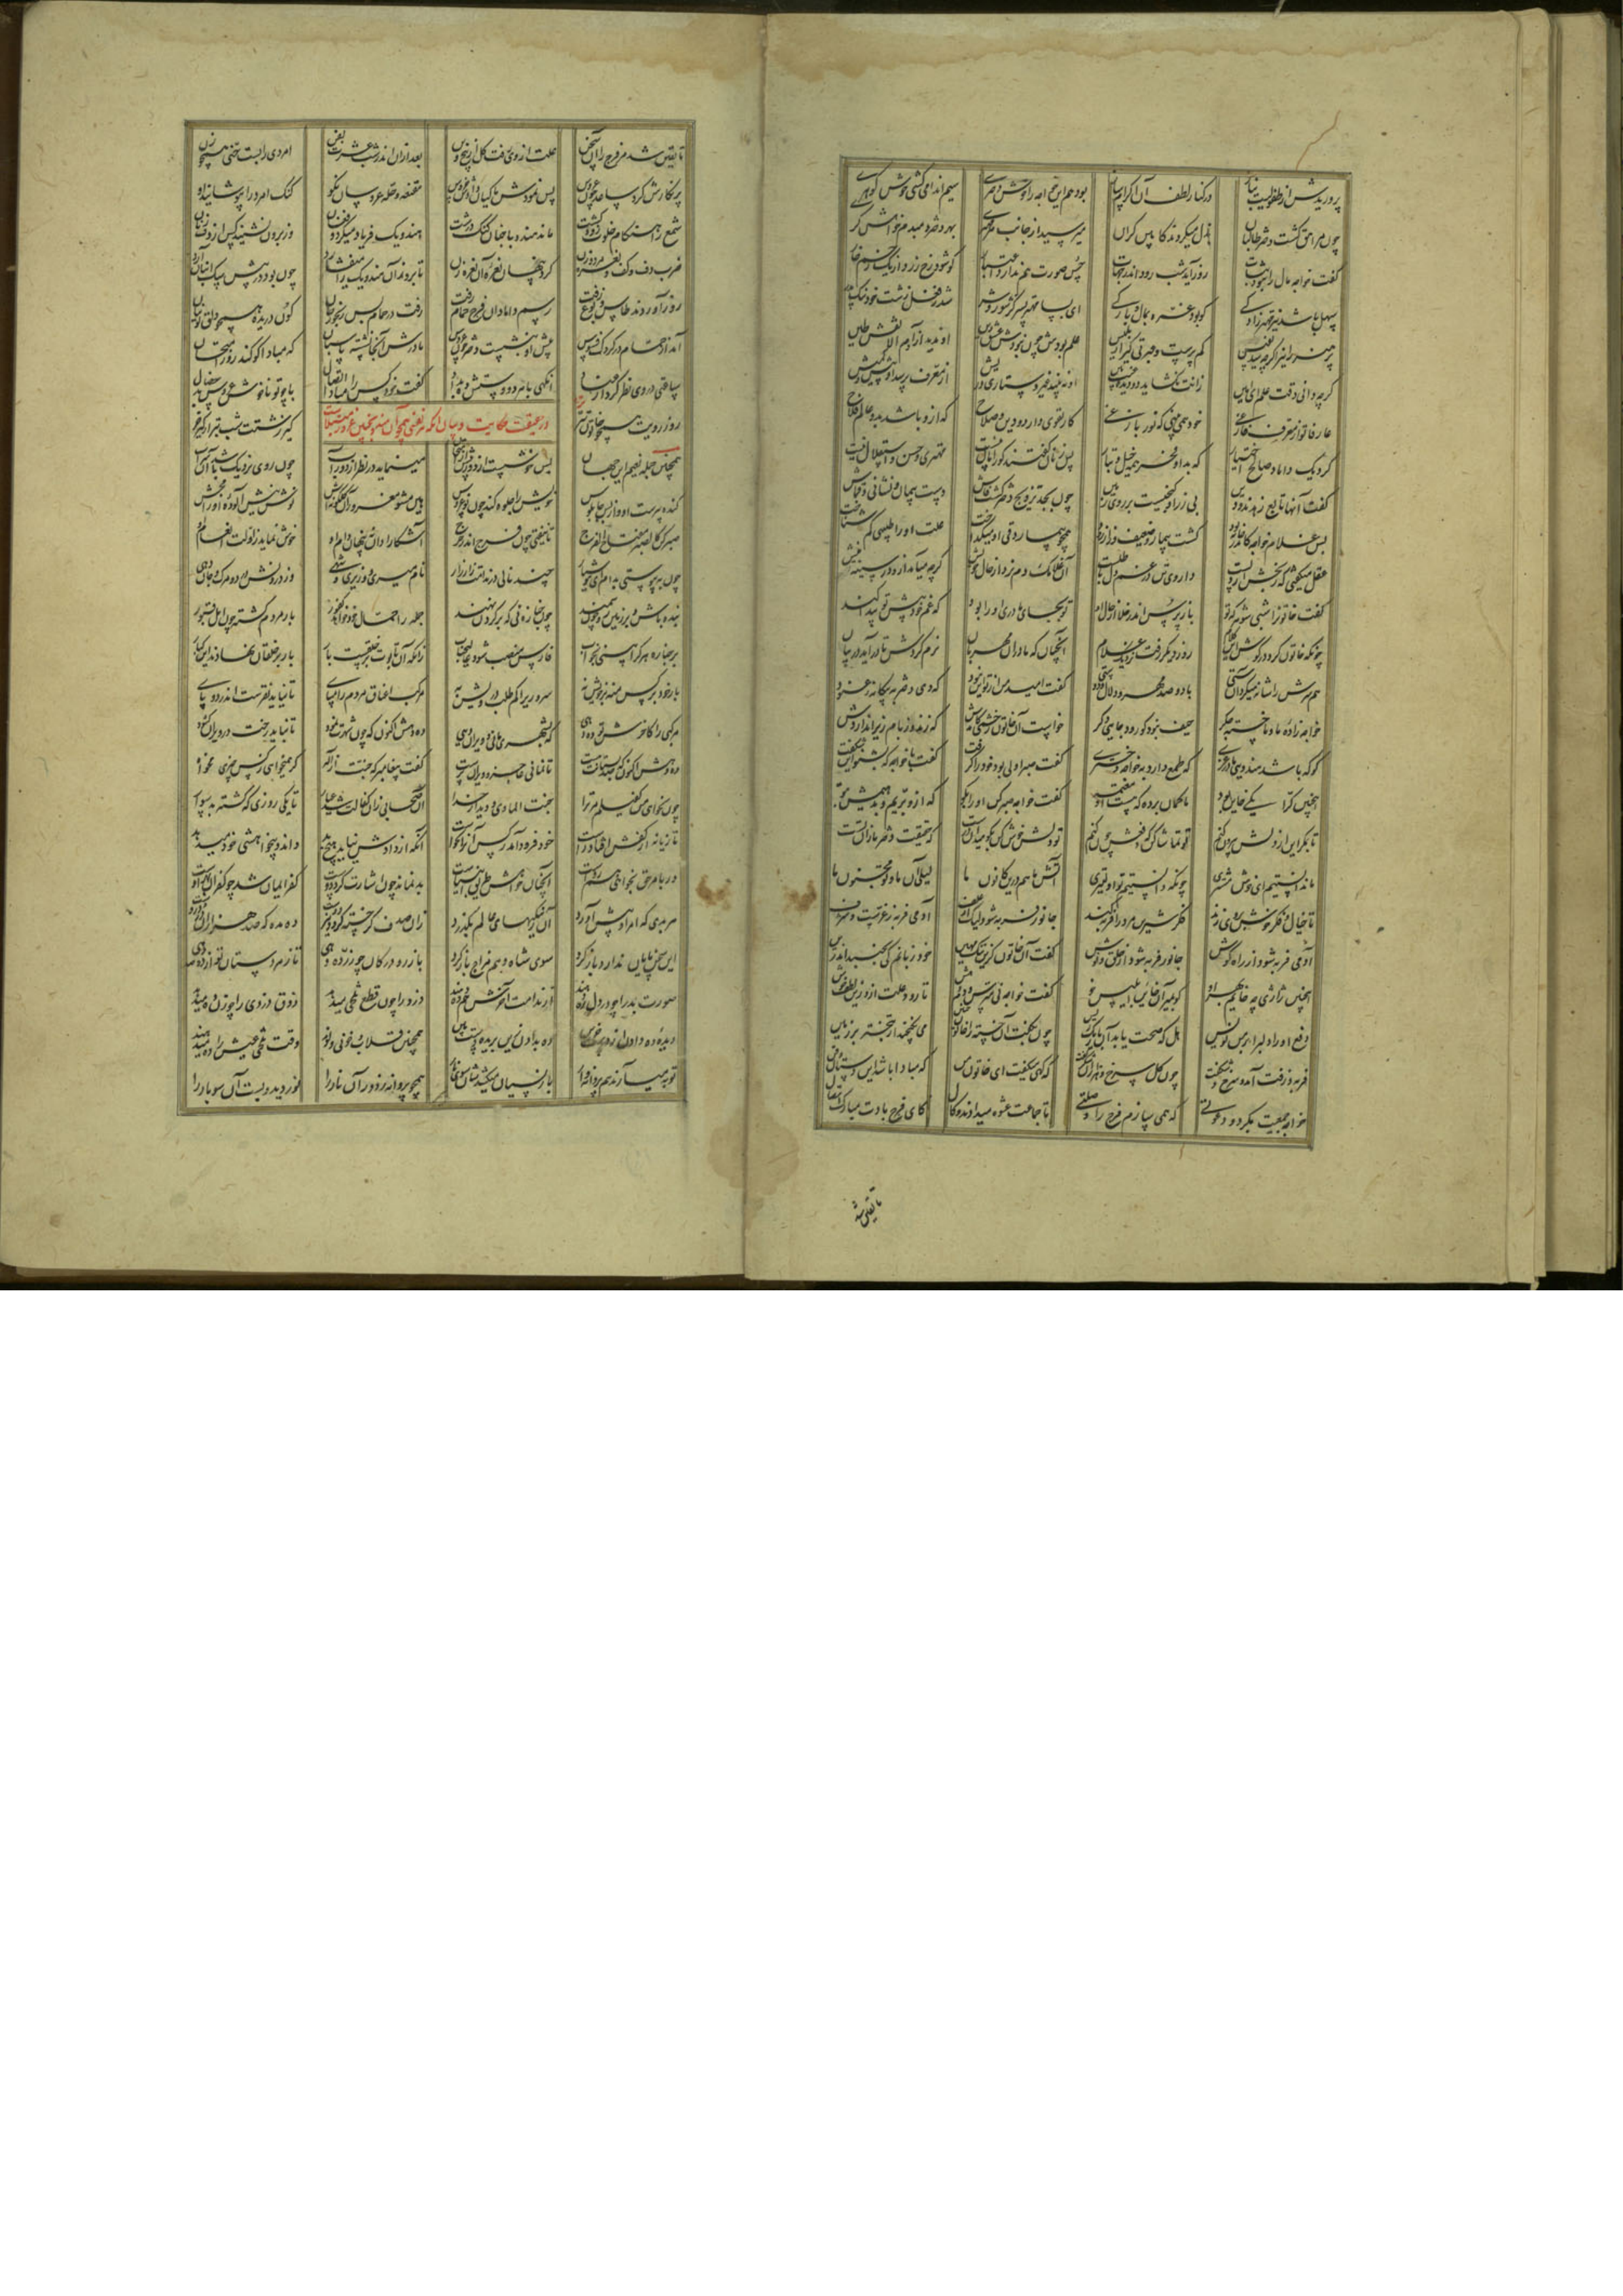 پروریدش از طفولیت بناز در کنار لطف آن اکرام ساز بود هم این خواجه را خوش دختری سیم اندامی کشی خوش گوهری
چون مراهق گشت دختر طالبان بذل میکردند کابین گران میرسیدش از جانب هر مهتری بهر دختر دم بدم خواهش گری
گفت خواجه مال را نبود ثبات روز آید شب رود اندر جهات حسن صورت هم ندارد اعتبار که شود رخ زرد از یک زخم خار
سهل باشد نیز مهتر زادگی کو بود غره بمال و بارگی ای بسا مهتر پسر کز شور و شر شد ز فعل زشت خود ننگ پدر
پر هنر را نیز اگرچه شد نفیس کم پرست و عبرتی گیر از بلیس علم بودش چون نبودش عشق دین او ندید از آدم الا نقش طین
گرچه دانی دقت علم ای امین زانت نگشاید دو دیده غیب بین او نبیند غیر دستاری و ریش از معرف پرسد از بیش و کمیش
عارفا تو از معرف فارغی خود همی بینی که نور بازغی کار تقوی دارد و دین و صلاح که ازو باشد بدو عالم فلاح
کرد یک داماد صالح اختیار که بد او فخر همه خیل و تبار پس زنان گفتند کورا مال نیست مهتری و حسن و استقلال نیست
گفت آنها تابع زهدند و دین بی زر او گنجیست بر روی زمین چون بجد تزویج دختر گشت فاش دست پیمان و نشانی و قماش
پس غلام خواجه کاندر خانه بود گشت بیمار و ضعیف و زار زود همچو بیمار دقی او میگداخت علت او را طبیبی کم شناخت
عقل میگفتی که رنجش از دلست داروی تن در غم دل باطلست آن غلامک دم نزد از حال خویش گرچه می‌آمد برو در سینه نیش
گفت خاتون را شبی شوهر که تو باز پرسش اندر خلا از حال او تو بجای مادری او را بود که غم خود پیش تو پیدا کند
چونکه خاتون کرد در گوش این کلام روز دیگر رفت نزدیک غلام آنچنان که مادران مهربان نرم کردش تا درآمد در بیان
پس سرش را شانه میکرد آن ستی با دو صد مهر و دلال و آشتی گفت امید من از تو این نبود که دهی دختر به بیگانه عنود
خواجه زاده ما و ما خسته جگر حیف نبود کو رود جایی دگر خواست آن خاتون ز خشمی کآمدش که زند وز بام زیر اندازدش
کو که باشد هندوی مادر غری که طمع دارد بخواجه دختری گفت صبر اولی بود خود را گرفت گفت با خواجه که بشنو این شگفت
اینچنین گراءکی خاین بود ما گمان برده که هست او معتمد گفت خواجه صبر کن او را بگو که ازو بّبریم و بدهیمش بتو
تا بمگر این از دلش بیرون کنم تو تماشا کن که دفعش چون کنم تو دلش خوش کن بگو میدان درست که حقیقت دختر ما زان تست
ما ندانستیم ای خوش مشتری چونکه دانستیم تو اولیتری آتش ما هم درین کانون ما لیلی آن ما و تو مجنون ما
تا خیال و فکر خوش بر وی زند فکر شیرین مرد را فربه کند جانور فربه شود لیک از علف آدمی فربه ز عزست و شرف
آدمی فربه شود از راه گوش جانور فربه شود از حلق و نوش گفت آن خاتون ازین ننگ مهین خود زبانم کی بجنبد اندرین
اینچنین ژاژی چه خایم بهر او گو بمیر آن خاین ابلیس خو گفت خواجه نی مترس و دم دمش تا رود علت ازو زین لطف خوش
دفع او را دلبرا بر من نویس هل که صحت یابد آن باریک ریس چون بگفت آن خسته را خاتون چنین می‌نگنجید از تبختر بر زمین
فربه و زفت آمد و سرخ و شکفت چون گل سرخ و هزاران شکر گفت که گهی میگفت ای خاتون من که مبادا باشد این دستان و فن
خواجه جمعیت بکرد و دعوتی که همی سازم فرج را وصلتی تا جماعت عشوه میدادند و گال کای فرج بادت مبارک اتصال
تا یقین شد
تا یقین‌تر شد فرج را آن سخن علت از وی رفت کل از بیخ و بن بعد از آن اندر شب عشرت بفن امردی را بست حنی همچو زن
پر نگارش کرد ساعد چون عروس پس نمودش ماکیان دادش خروس مقنعه و حله عروسان نکو کنگ امرد را بپوشانید او
شمع را هنگام خلوت زود کشت ماند هندو با چنان کنگ درشت هندویک فریاد میکرد و فغان از برون نشنید کس از دف زنان
ضرب دف و کف و نعره مرد و زن کرد پنهان نعره آن نعره زن تا بروز آن هندویک را میفشارد چون بود در پیش سگ انبان آرد
روز آوردند طاس و بوغ زفت رسم دامادان فرج حمام رفت رفت در حمام بس رنجور جان کون دریده همچو دلق تونیان
آمد از حمام در گردک فسوس پیش او بنشست دختر چون عروس مادرش آنجا نشسته پاسبان که مبادا کو کند روز امتحان
ساعتی در وی نظر کرد از عناد آنگهی با هر دو دستش ده بداد گفت خود کس را مبادا اتصال با چو تو ناخوش عروس بد فعال
روز رویت همچو خاتون تتر در حقیقت حکایت و بیان آنکه هر نفسی همچو آن هندو بچنین غرور مبتلاست کیر زشتت شب بتر از کیر خر
همچنان جمله نعیم این جهان بس خوشست از دور پیش از امتحان مینماید در نظر از دور آب چون روی نزدیک باشد آن سراب
گنده پیرست او و از بس چاپلوس خویش را جلوه کند چون نو عروس هین مشو مغرور آن گلگونه‌اش نوش نیش آلوده او را مچش
صبر کن کالصبر مفتاح الفرج تا نیفتی چون فرج اندر حرج آشکارا دانه پنهان دام او خوش نماید ز اولت انعام او
چون بپیوستی بدام ای هوشیار چند نالی در ندامت زار زار نام میری و وزیری و شهی در درونش درد و مرگ و جان دهی
بنده باش و بر زمین رو چون سمند چون جنازه نی که بر گردن نهند جمله را حمال خود خواهد کفور بار مردم گشته چون اهل قبور
بر جنازه هر کرا بینی بخواب فارس منصب شود عالی رکاب زانکه آن تابوت بر خلقست بار بار بر خلقان نهادند این کبار
بار خود بر کس منه بر خویش نه سروری را کم طلب درویش به مرکب اعناق مردم را مپای تا نیاید نقرست اندر دو پای
مرکبی را کاخرش تو ده دهی که بشهری مانی و ویران دهی ده دهش اکنون که چون شهرت نمود تا نباید رخت در ویران گشود
ده دهش اکنون که صد بستانت هست تا نمانی عاجز و ویران پرست گفت پیغامبر که جنت از اله گر همی خواهی ز کس چیزی مخواه
چون نخواهی من کفیلم مر ترا جنت الماوی و دیدار خدا آن صحابی زان کفالت شد عیار تا یکی روزی که گشته بد سوار
تازیانه از کفش افتاد راست خود فرو آمد ز کس آن را نخواست آنکه از دادش نیاید هیچ بد داند و بی خواهشی خود میدهد
ور بامر حق بخواهی آن رواست آنچنان خواهش طریق انبیاست بد نماند چون اشارت کرد دوست کفر ایمان شد چو کفر از بهر اوست
هر بدی که امر او پیش آورد آن ز نیکیهای عالم بگذرد زان صدف گر خسته گردد نیز پوست ده مده که صد هزاران در دروست
این سخن پایان ندارد بازگرد سوی شاه و هم مزاج باز گرد باز رو در کان چو زر ده دهی تا رهد دستان تو از ده دهی
صورت بد را چو در دل ره دهند از ندامت آخرش هم ده دهند دزد را چون قطع تلخی میدهد ذوق دزدی را چو زن ده میدهد
دیده ده دادن از دست حزین ده بدادن زین بریده دست بین همچنین قلاب و خونی و لوند وقت تلخی عیش را ده میدهند
توبه می‌آرند هم پروانه‌وار باز نسیان میکشدشان سوی کار همچو پروانه ز دور آن نار را نور دید و بست آن سو بار را